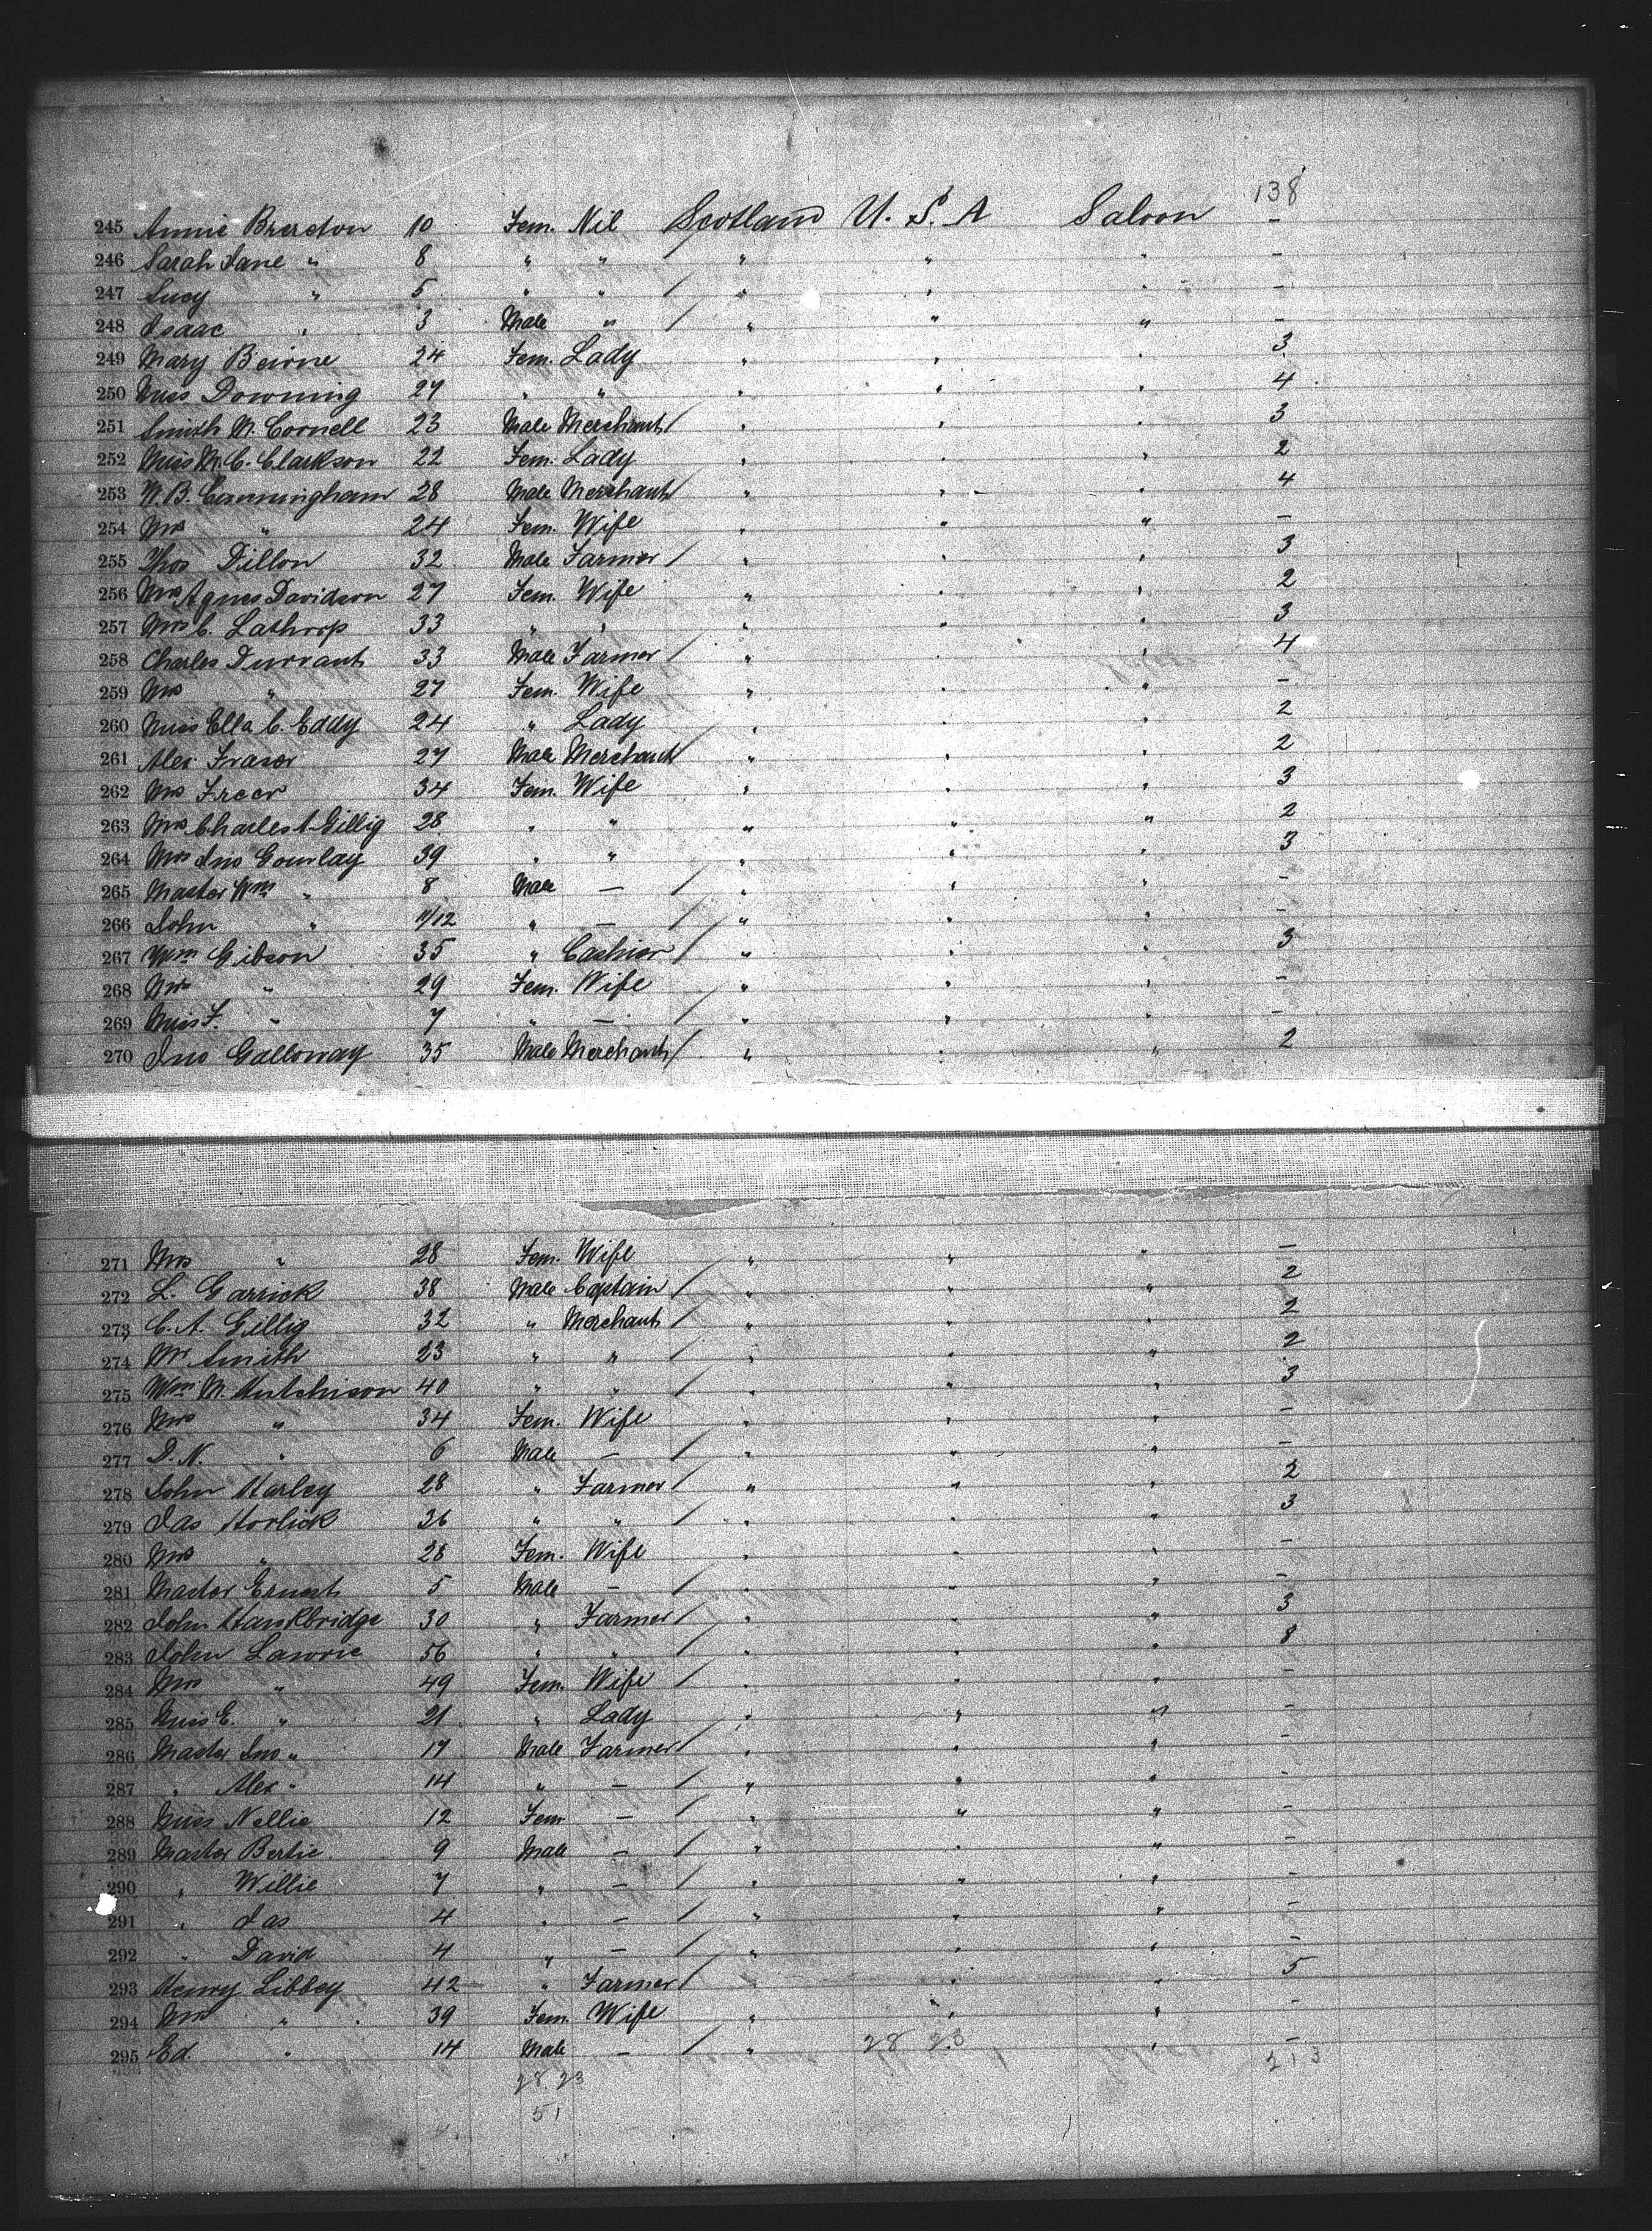 138
245 Annie Brereton 10 Fem. Nil Scotland U. S. A Saloon -
246 Sarah Jane " 8 " " " " " -
247 Lucy " 5 " " / " " " -
248 Isaac " 3 Male " / " " " -
249 Mary Beirne 24 Fem. Lady " " " 3
250 Miss Downing 27 " " " " " 4
251 Smith M. Cornell 23 Male Merchant / " " " 3
252 Miss M. C. Clarkson 22 Fem. Lady " " " 2
253 Cunningham 28 Male Merchant / " " " 4
254 Mrs " 24 Fem. Wife " " " -
255 Thos Dillon 32 Male Farmer / " " " 3
256 Mrs Agnes Davidson 27 Fem. Wife " " " 2
257 Mrs C. Lathrop 33 " " " " " 3
258 Charles Durrant 33 Male Farmer / " " " 4
259 Mrs " 27 Fem. Wife " " " -
260 Miss Ella C. Eddy 24 " Lady " " " 2
261 Alex Fraser 27 Male Merchant / " " " 2
262 Mrs Freer 34 Fem. Wife " " " 3
263 Mrs Charles A Gillig 28 " " " " " 2
264 Mrs Jno Gourlay 39 " " " " " 3
265 Master Wm " 8 Male - / " " " -
266 John " 11/12 " - / " " " -
267 Wm Gibson 35 " Cashier / " " " 3
268 Mrs " 29 Fem. Wife / " " " -
269 Miss F. " 7 " - / " " " -
270 Jno Galloway 35 Male Merchant / " " " 2
271 Mrs " 28 Fem. Wife " " " -
272 L. Garrick 38 Male Captain / " " " 2
273 C. A. Gillig 32 " Merchant / " " " 2
274 Mr Smith 23 " " / " " " 2
275 Wm M. Hutchison 40 " " / " " " 3
276 Mrs " 34 Fem. Wife " " " -
277 D. N. " 6 Male - / " " " -
278 John Harley 28 " Farmer / " " " 2
279 Jas Horlick 36 " " / " " " 3
280 Mrs " 28 Fem. Wife " " " -
281 Master Ernest 5 Male - / " " " -
282 John Hankbridge 30 " Farmer / " " " 3
283 John Lawrie 56 " " / " " " 8
284 Mrs " 49 Fem. Wife / " " " -
285 Miss E. " 21 " Lady " " " -
286 Master Jno " 17 Male Farmer / " " " -
287 " Alex " 14 " - / " " " -
288 Miss Nellie 12 Fem - / " " " -
289 Master Bertie 9 Male - / " " " -
290 " Willie 7 " - / " " " -
291 " Jas 4 " - / " " " -
292 " David 4 " - / " " " -
293 Henry Libbey 42 " Farmer / " " " 5
294 Mrs " 39 Fem. Wife " " " -
295 Ed. " 14 Male - / " 28 23 " -
28 23 213
51